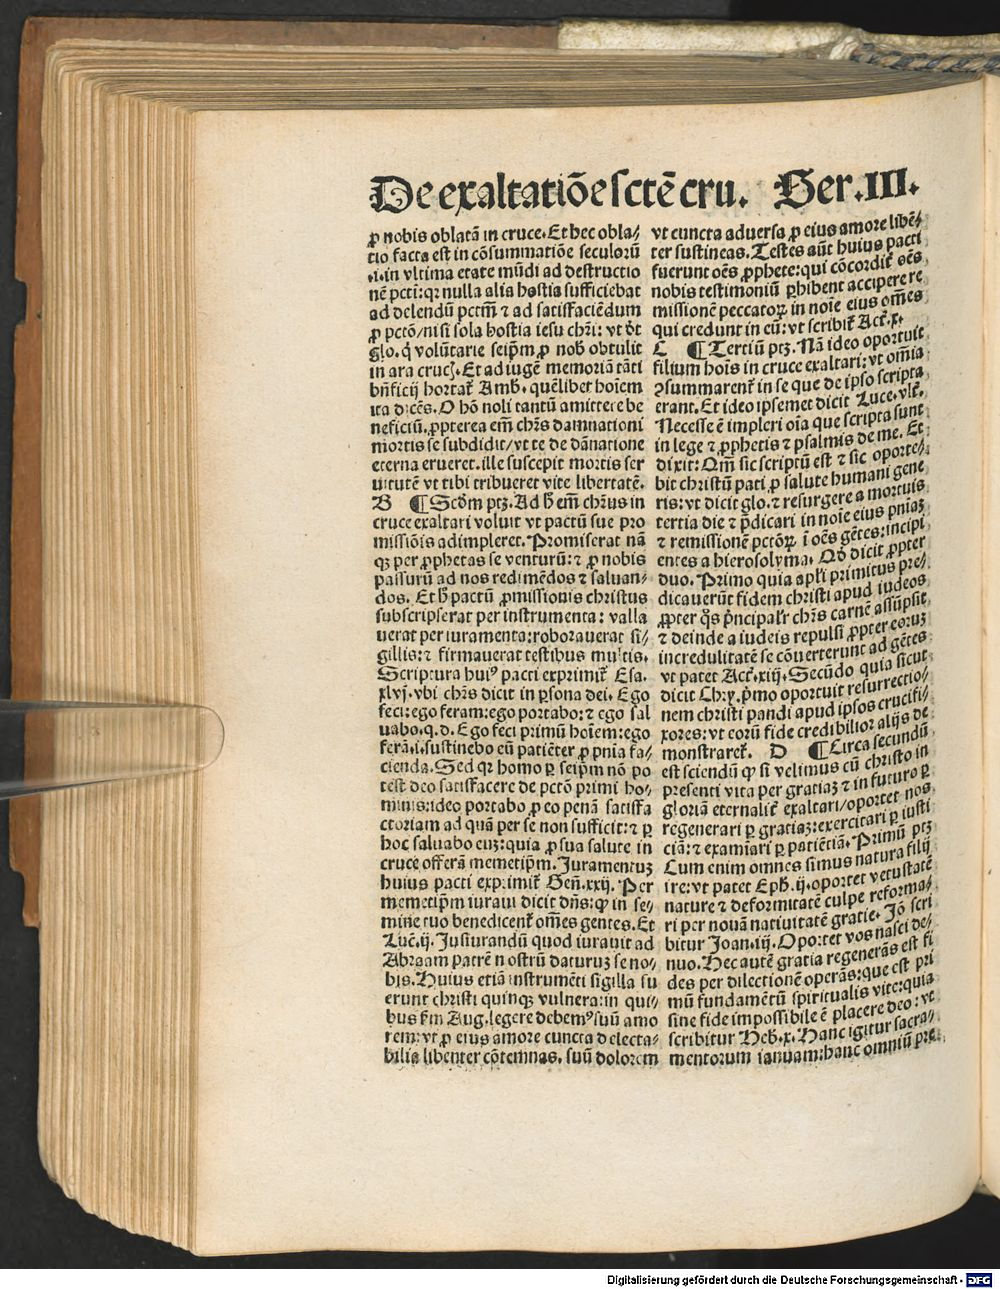 De exaltatiōe sctē cru. Ser. III.
ꝓ nobis oblatā in cruce. Et hec obla/
tio facta est in cōsummatiōe seculorū
.i. in vltima etate mūdi ad destructio
nē pctī: qꝛ nulla alia hostia sufficiebat
ad delendū pctm̄ ⁊ ad satisfaciēdum
ꝓ pctō/nisi sola hostia iesu chr̄i: vt dt̄
glo. q̄ volūtarie seip̄m ꝓ nob̄ obtulit
in ara cruc. Et ad iugē memoriā tāti
bn̄ficij hortat̄ Amb. quēlibet hoīem
ita dicēs. O hō noli tantū amittere be
neficiū. ꝓpterea em̄ chr̄s damnationi
mortis se subdidit/vt te de dānatione
eterna erueret. ille suscepit mortis ser
uitutē vt tibi tribueret vite libertatē.
B ¶ Scd̄m ptꝫ. Ad h̄ em̄ chr̄us in
cruce exaltari voluit vt pactū sue pro
missiōis adimpleret. Promiserat nā
qꝫ per ꝓphetas se venturū: ⁊ ꝓ nobis
passurū ad nos redimēdos ⁊ saluan/
dos. Et h̄ pactū ꝓmissionis christus
subscripserat per instrumenta: valla
uerat per iuramenta: roborauerat si/
gillis: ⁊ firmauerat testibus multis.
Scriptura huiꝰ pacti exprimit̄ Esa.
xlvj. vbi chr̄s dicit in ꝑsona dei. Ego
feci: ego feram: ego portabo: ⁊ ego sal
uabo. q.d. Ego feci primū hoīem: ego
ferā .i. sustinebo eū patiēter ꝓ pnīa fa/
cienda. Sed qꝛ homo ꝑ seip̄m nō po
test deo satisfacere de pctō primi ho/
minis: ideo portabo ꝓ eo penā satisfa
ctoriam ad quā per se non sufficit: ⁊ ꝑ
hoc saluabo euꝫ: quia ꝓ sua salute in
cruce offerā memetip̄m. Juramentuꝫ
huius pacti exprimit̄ Gen̄. xxij. Per
memetip̄m iuraui dicit dn̄s: ꝙ in se/
mine tuo benedicent̄ om̄es gentes. Et
Luc̄. ij. Jusiurandū quod iurauit ad
Abraam patrē nostrū daturuꝫ se no/
bis. Huius etiā instrumēti sigilla fu
erunt christi quinqꝫ vulnera: in qui/
bus fm̄ Aug. legere debemꝰ suū amo
rem: vt ꝓ eius amore cuncta delecta/
bilia libenter cōtemnas. suū dolorem
vt cuncta aduersa ꝓ eius amore libē/
ter sustineas. Testes aūt huius pacti
fuerunt oēs ꝓphete: qui cōcordit̄ oēs
nobis testimoniū ꝑhibent accipere re
missionē peccatoꝝ in noīe eius om̄es
qui credunt in eū: vt scribit̄ Act̄. x.
C ¶ Tertiū ptꝫ. Nā ideo oportuit
filium hoīs in cruce exaltari: vt om̄ia
ꝯsummarent̄ in se que de ipso scripta
erant. Et ideo ipsemet dicit Luce. vlt̄.
Necesse ē impleri oīa que scripta sunt
in lege ⁊ ꝓphetis ⁊ psalmis de me. Et
dixit: Qm̄ sic scriptū est ⁊ sic oporte/
bit christū pati ꝓ salute humani gene
ris: vt dicit glo. ⁊ resurgere a mortuis
tertia die ⁊ p̄dicari in noīe eius pniaꝫ
⁊ remissionē pctōꝝ ī oēs gētes: incipi
entes a hierosolyma. Qd̄ dicit ꝓpter
duo. Primo quia apl̄i primitus pre/
dicauerūt fidem christi apud iudeos
ꝓpter qōs p̄ncipalr̄ chr̄s carnē assūpsit
⁊ deinde a iudeis repulsi ꝓpter eoruꝫ
incredulitatē se cōuerterunt ad gētes
vt patet Act̄. xiij. Secūdo quia sicut
dicit Chry. p̄mo oportuit resurrectio/
nem christi pandi apud ipsos crucifi/
xores: vt eorū fide credibilior alijs de
monstraret̄. D ¶ Circa secundū
est sciendū ꝙ si velimus cū christo in
presenti vita per gratiaꝫ ⁊ in futuro ꝑ
gloriā eternalit̄ exaltari/oportet nos
regenerari ꝑ gratiaꝫ: exercitari ꝑ iusti
ciā: ⁊ examīari ꝑ patiētiā. Primū ptꝫ
Cum enim omnes simus natura filij
ire: vt patet Eph̄. ij. oportet vetustatē
nature ⁊ deformitatē culpe reforma/
ri per nouā natiuitatē gratie. Jō scri
bitur Joan. iij. Oportet vos nasci de/
nuo. Hec autē gratia regenerās est fi
des per dilectionē operās: que est pri
mū fundamētū spiritualis vite: quia
sine fide impossibile ē placere deo: vt
scribitur Heb̄. x. Hanc igitur sacra/
mentorum ianuam: hanc omniū pre
Digitalisierung gefördert durch die Deutsche Forschungsgemeinschaft - DFG